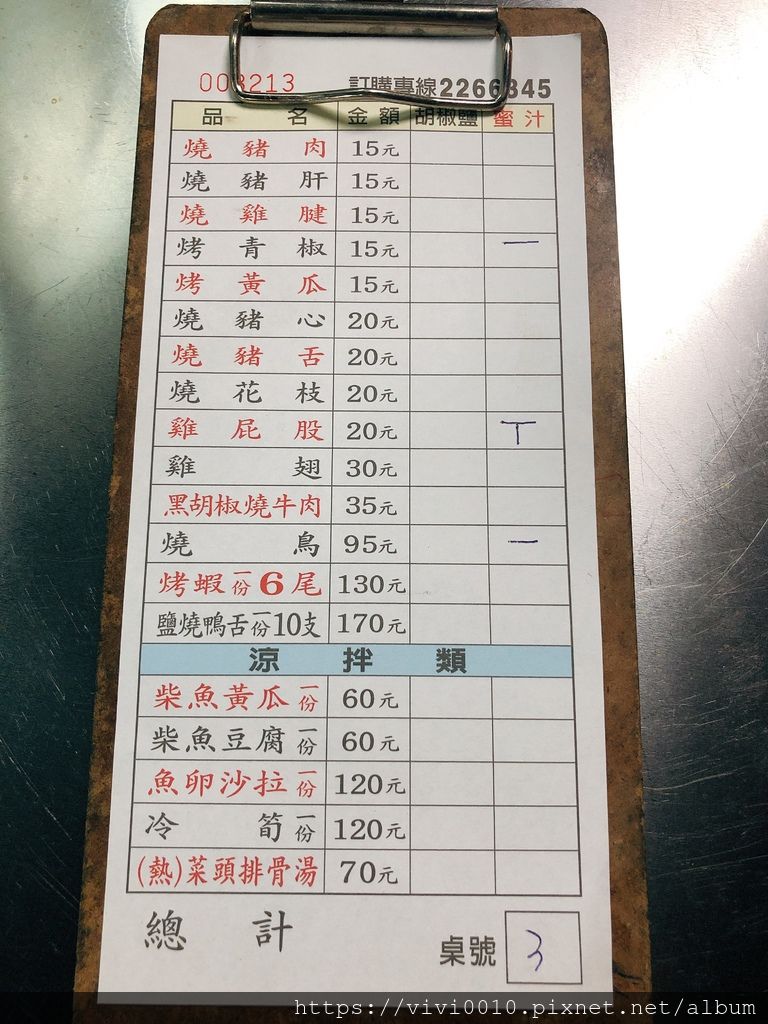 008213 訂購專線2266345
品名 金額 胡椒鹽 蜜汁
燒豬肉 15元
燒豬肝 15元
燒雞腱 15元
烤青椒 15元 一
烤黃瓜 15元
燒豬心 20元
燒豬舌 20元
燒花枝 20元
雞屁股 20元 丅
雞翅 30元
黑胡椒燒牛肉 35元
燒鳥 95元 一
烤蝦一份6尾 130元
鹽燒鴨舌一份10支 170元
涼拌類
柴魚黃瓜一份 60元
柴魚豆腐一份 60元
魚卵沙拉一份 120元
冷筍一份 120元
(熱)菜頭排骨湯 70元
總計
桌號 3
https://vivi0010.pixnet.net/album